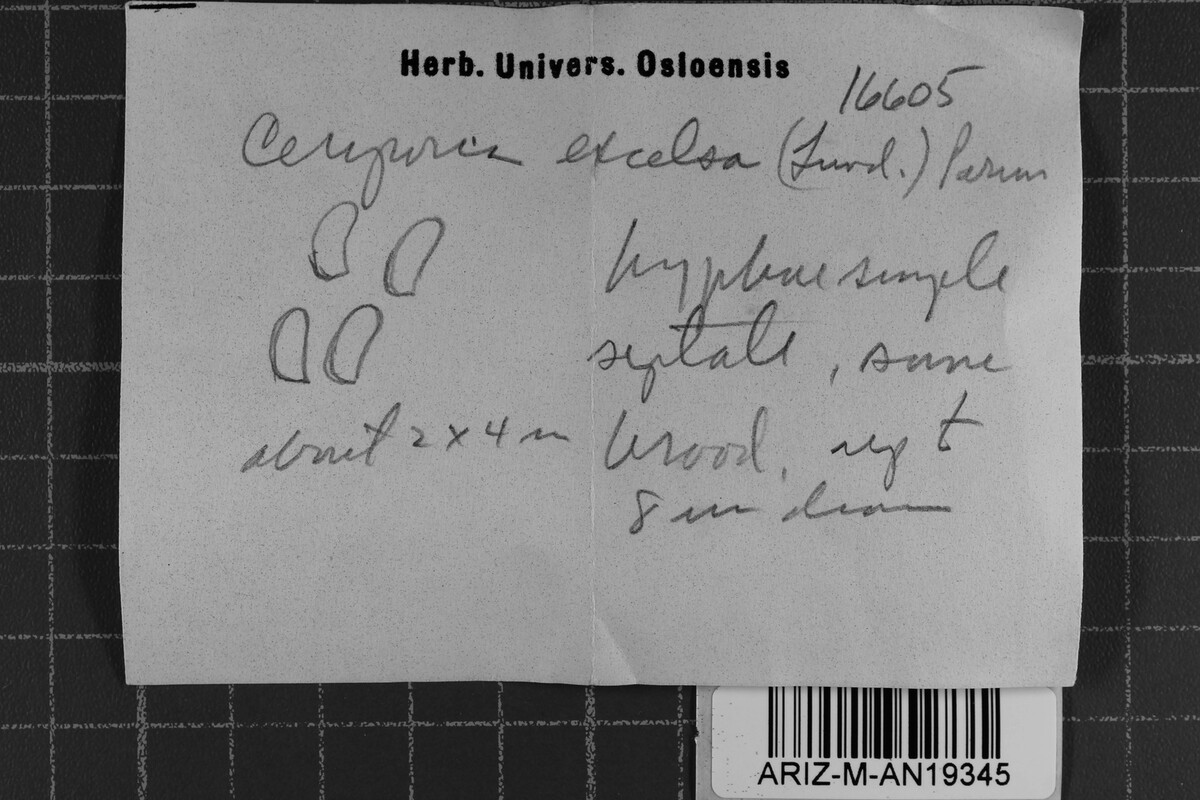 Herb. Univers. Osloensis
16605
Ceriporia excelsa (Lund.) Parm
hyphae simple
septate, some
about 2 x 4 m broad, up t
8 m diam
ARIZ-M-AN19345